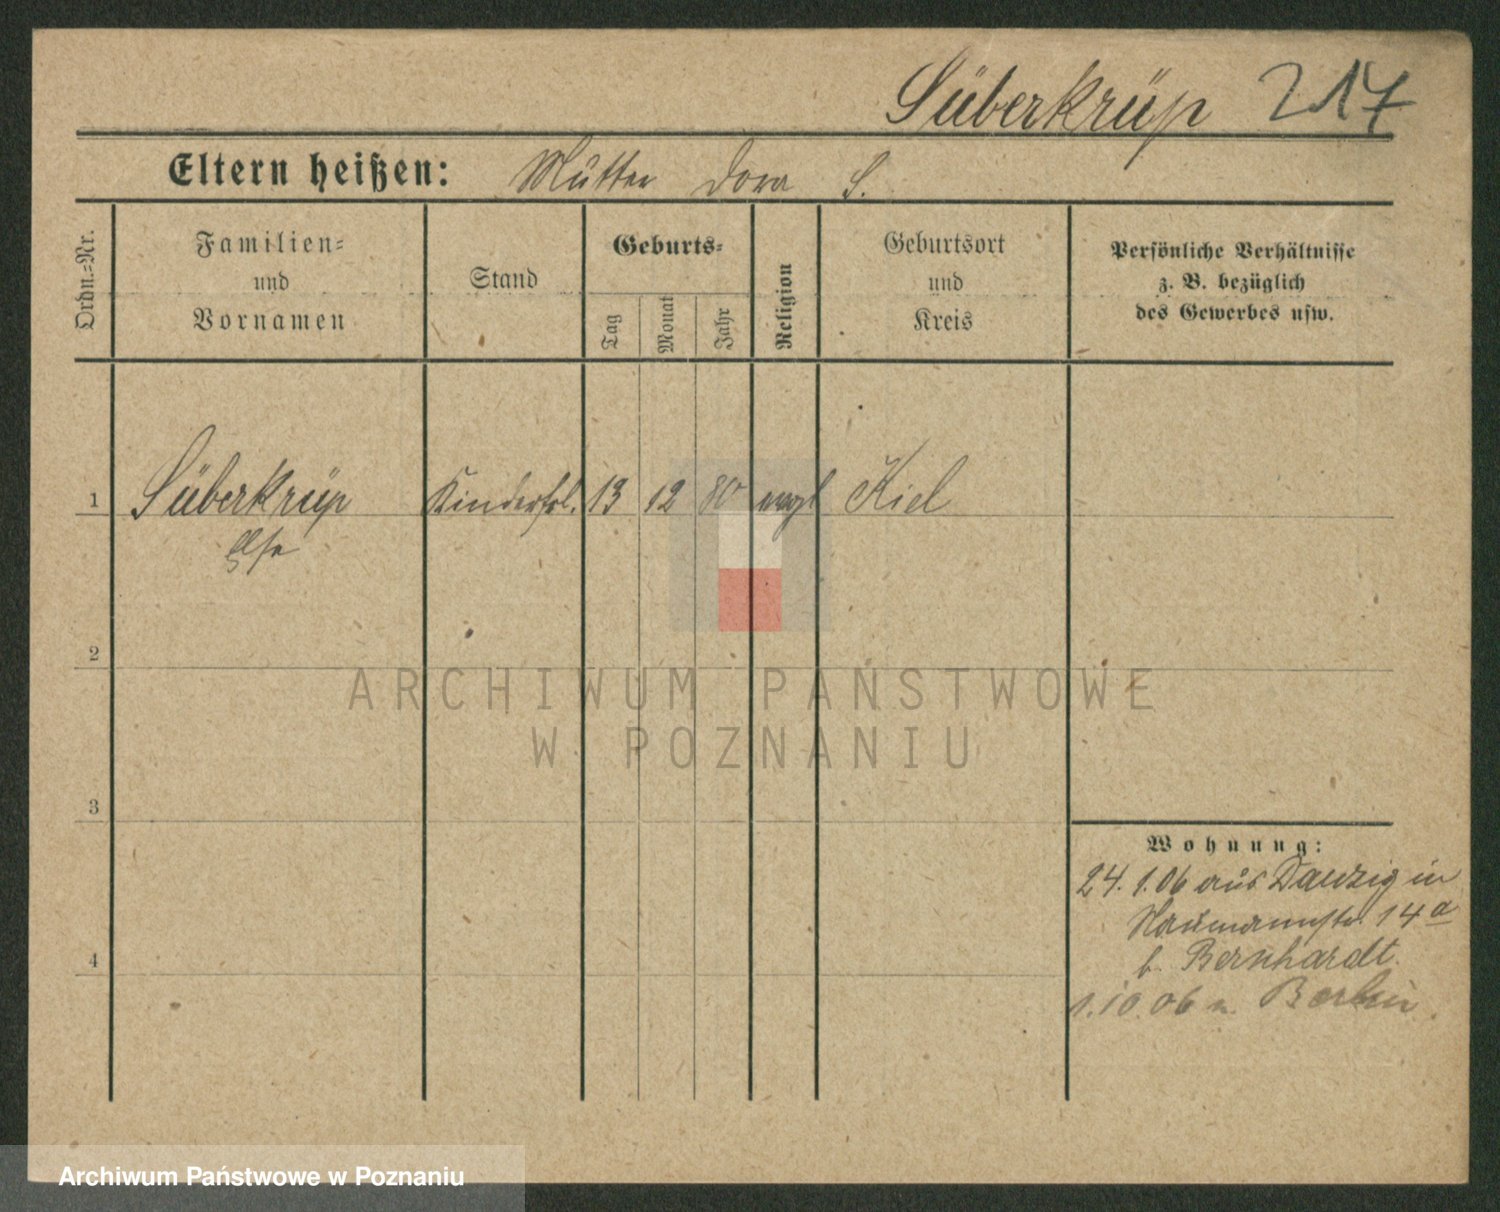 Süberkrüp 217
Eltern heißen: Mutter Dora S.
Ordn.=Nr.
Familien=
und
Vornamen
Stand
Geburts=
Tag
Monat
Jahr
Religion
Geburtsort
und
Kreis
Persönliche Verhältnisse
z. B. bezüglich
des Gewerbes usw.
1 Süberkrüp Kinderfrl. 13 12 80 evgl Kiel
Else
2
ARCHIWUM PAŃSTWOWE
W POZNANIU
3
Wohnung:
24. 1.06 aus Danzig in
Naumannstr. 14a
b. Bernhardt.
4
1.10.06 n. Berlin.
Archiwum Państwowe w Poznaniu